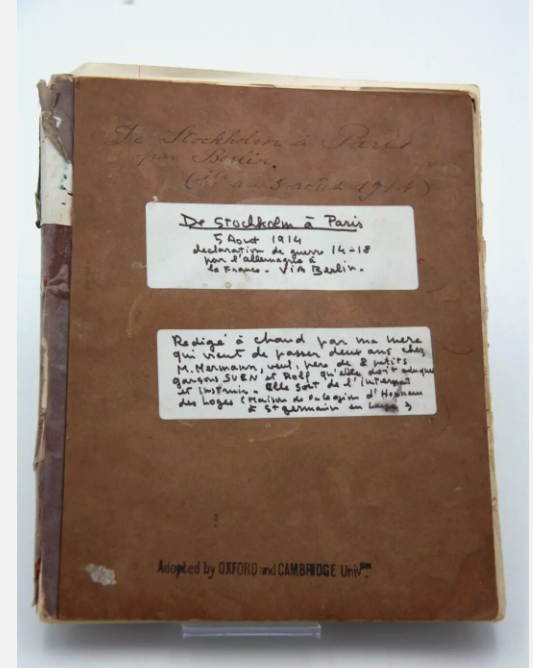 De Stockholm à Paris
par Berlin.
(1er au 5 août 1914)
De Stockholm à Paris
5 Aout 1914
declaration de guerre 14-18
par l'allemagne à
la France - VIA Berlin.
Redigé à chaud par ma mere
qui vient de passer deux ans chez
M. Hermann, veuf, père de 2 petits
garçons SVEN et Rolf qu'elle doit eduquer
et instruire - Elle sort de l'Internat
des Loges (Maison de la Legion d'Honneur
à St germain en Laye)
Adopted by OXFORD and CAMBRIDGE Univ